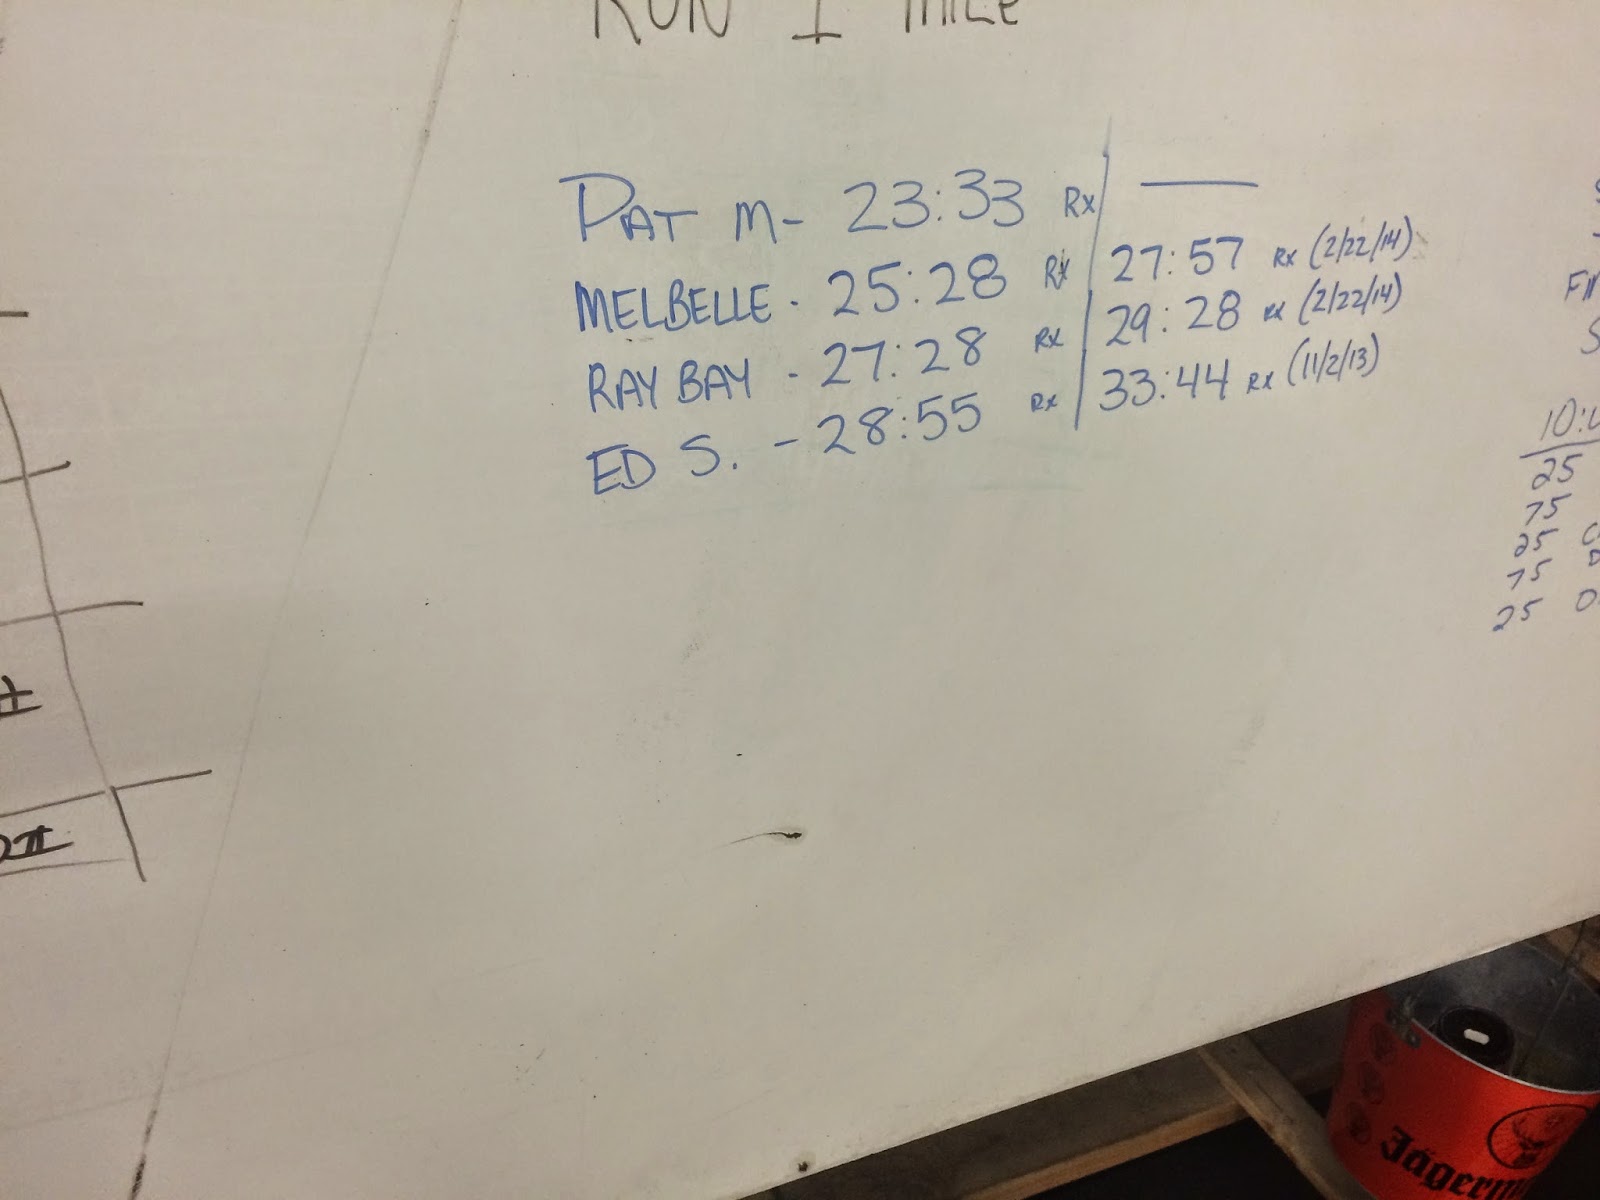 RUN 1 MILE
PAT M- 23:33 Rx ——
MELBELLE - 25:28 Rx 27:57 Rx (2/22/14)
RAY BAY - 27:28 Rx 29:28 Rx (2/22/14)
ED S. - 28:55 Rx 33:44 Rx (11/2/13)
25
75
25
75
25